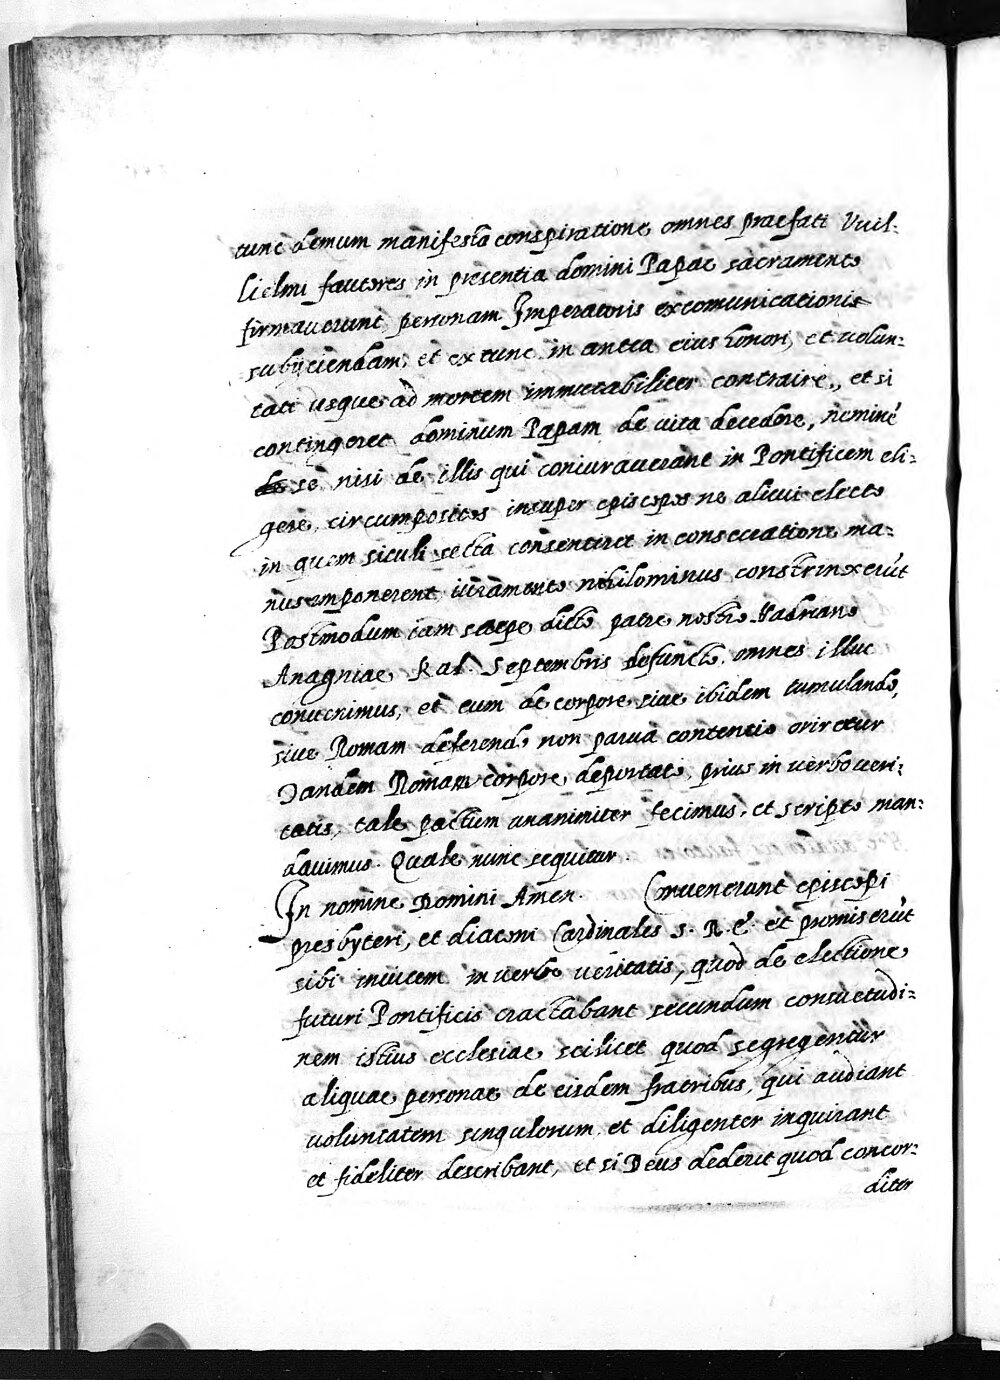 tunc demum manifesta conspiratione omnes praefati Vuil-
lielmi fautores in presentia domini Papae sacramento
firmaverunt personam Imperatoris excomunicationis
subijciendam, et ex tunc in antea eius honori, et volun-
tati usque ad mortem immutabiliter contraire, et si
contingeret dominum Papam de vita decedere, neminē
se nisi de illis qui coniuraverant in Pontificem eli-
gere, circumpositos insuper episcopos ne alicui electo
in quem siculi secta consentiret in consecratione ma-
nus imponerent iuramento nihilominus constrinxerūt
Postmodum iam saepe dicto patre nostro Hadriano
Anagniae Kal. Septembris defuncto, omnes illuc
convenimus, et cum de corpore sive ibidem tumulando,
sive Romam deferendo non parva contentio oriretur
Tandem Romam corpore deportato, prius in verbo veri-
tatis, tale pactum unanimiter fecimus, et scripto man-
davimus. Quale nunc sequitur.
In nomine Domini Amen. Convenerant episcopi
presbyteri, et diaconi Cardinales S. R. E. et promiserūt
sibi invicem in verbo veritatis, quod de electione
futuri Pontificis tractabant secundum consuetudi-
nem istius ecclesiae, scilicet quod segregentur
aliquae personae de eisdem fratribus, qui audiant
voluntatem singulorum et diligenter inquirant
et fideliter describant, et si Deus dederit quod concor-
diter